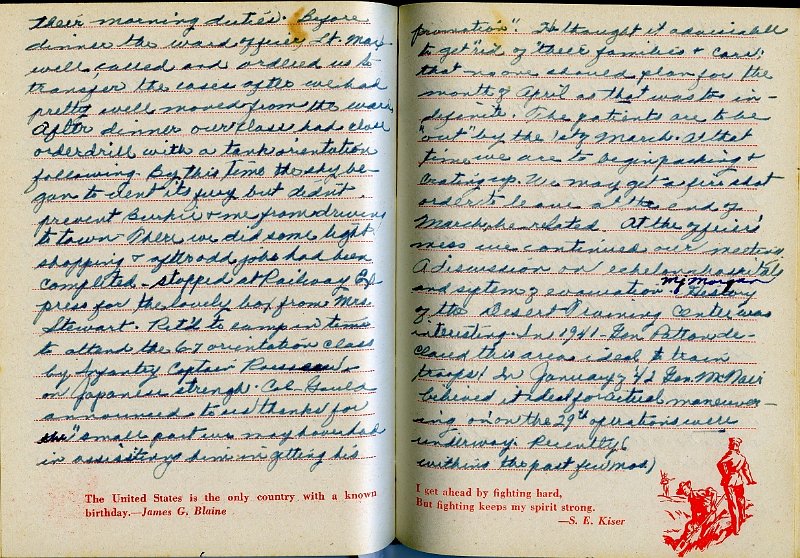 their morning duties. Before
dinner the ward officer, Lt. Max-
well, called and ordered us to
transfer the cases after we had
pretty well moved from the ward.
After dinner our class had close
order drill with a tank orientation
following. By this time the sky be-
gan to vent its fury but didn't
prevent Burkie & me from driving
to town. There we did some light
shopping & after odd jobs had been
completed - stopped at Railway Ex-
press for the lovely box from Mrs.
Stewart. Ret'd to camp in time
to attend the 6-7 orientation class
by Infantry Captain
on Japanese strength. Col. Gould
announced to us thanks for
the "small part we may have had
in assisting him in getting his
The United States is the only country with a known
birthday.—James G. Blaine
promotion". He thought it advisable
to get "rid of their families & cars;
that no one should plan for the
month of April as that was to in-
definite. The patients are to be
"out" by the 1st of March. At that
time we are to begin packing &
crating up. We may get a fire shot
order to leave at the end of
March he related. At the officers'
mess we continued our meeting
A discussion on echelon hospitals
and system of evacuation.
Maj Morgan
History
of the Desert Training Center was
interesting. In 1941 - Gen Patton de-
clared this area ideal to train
troops! In January of 42 Gen McNair
believed it ideal for actual maneuver-
ing on on the 29th operations were
underway. Recently (
within the past few mos)
I get ahead by fighting hard,
But fighting keeps my spirit strong.
—S. E. Kiser